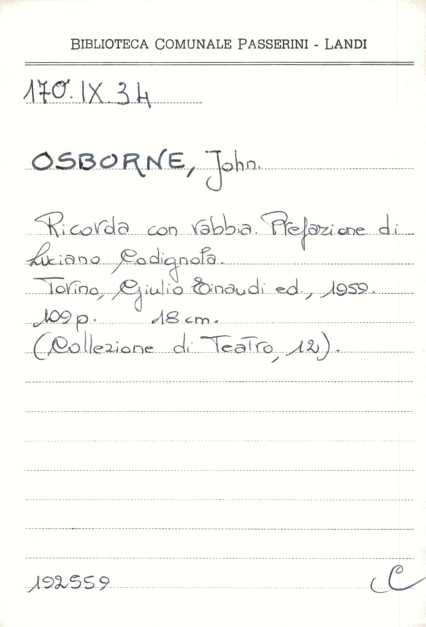 BIBLIOTECA COMUNALE PASSERINI - LANDI
170.IX.34
OSBORNE, John.
Ricorda con rabbia. Prefazione di
Luciano Codignola.
Torino, Giulio Einaudi ed., 1959.
109 p. 18 cm.
(Collezione di Teatro, 12).
192559 C